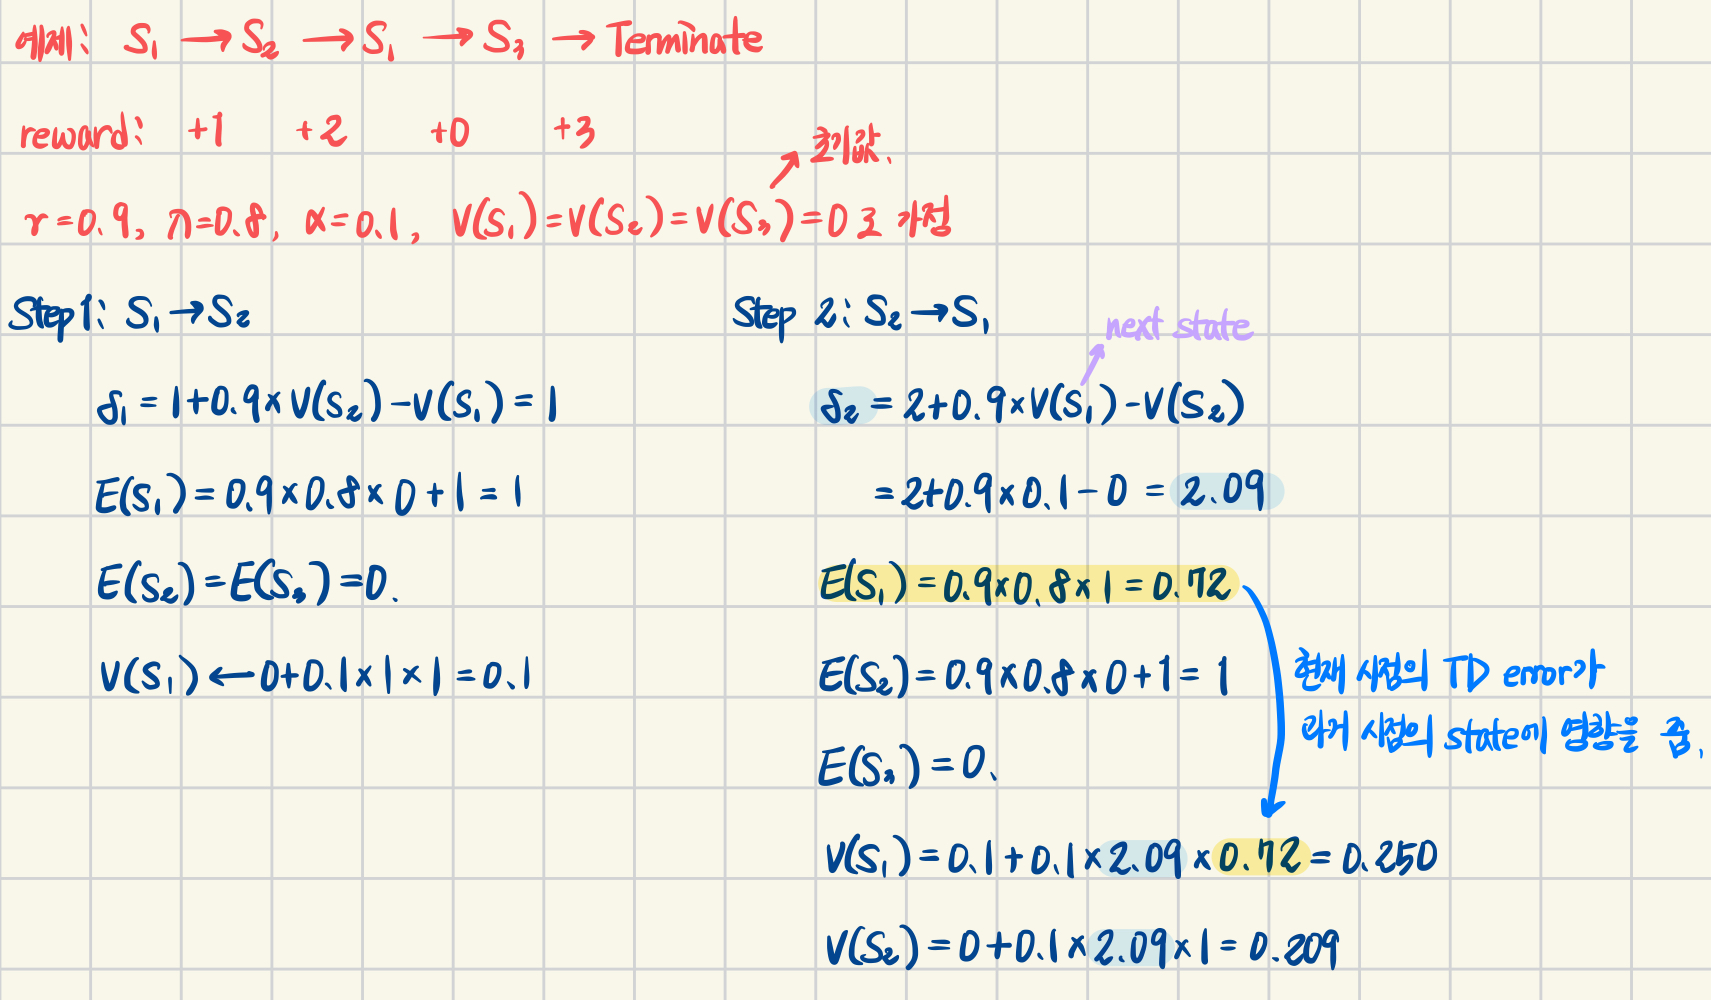 예제: S₁ → S₂ → S₁ → S₃ → Terminate
reward: +1 +2 +0 +3
초기값.
r=0.9, λ=0.8, α=0.1, V(S₁)=V(S₂)=V(S₃)=0로 가정
Step1: S₁→S₂
δ₁ = 1+0.9×V(S₂)-V(S₁)=1
E(S₁)=0.9×0.8×0+1=1
E(S₂)=E(S₃)=0.
V(S₁)←0+0.1×1×1=0.1
Step 2: S₂→S₁
next state
δ₂=2+0.9×V(S₁)-V(S₂)
=2+0.9×0.1-0 = 2.09
E(S₁)=0.9×0.8×1=0.72
E(S₂)=0.9×0.8×0+1=1
현재 시점의 TD error가
과거 시점의 state에 영향을 줌.
E(S₃)=0.
V(S₁)=0.1+0.1×2.09×0.72=0.250
V(S₂)=0+0.1×2.09×1=0.209